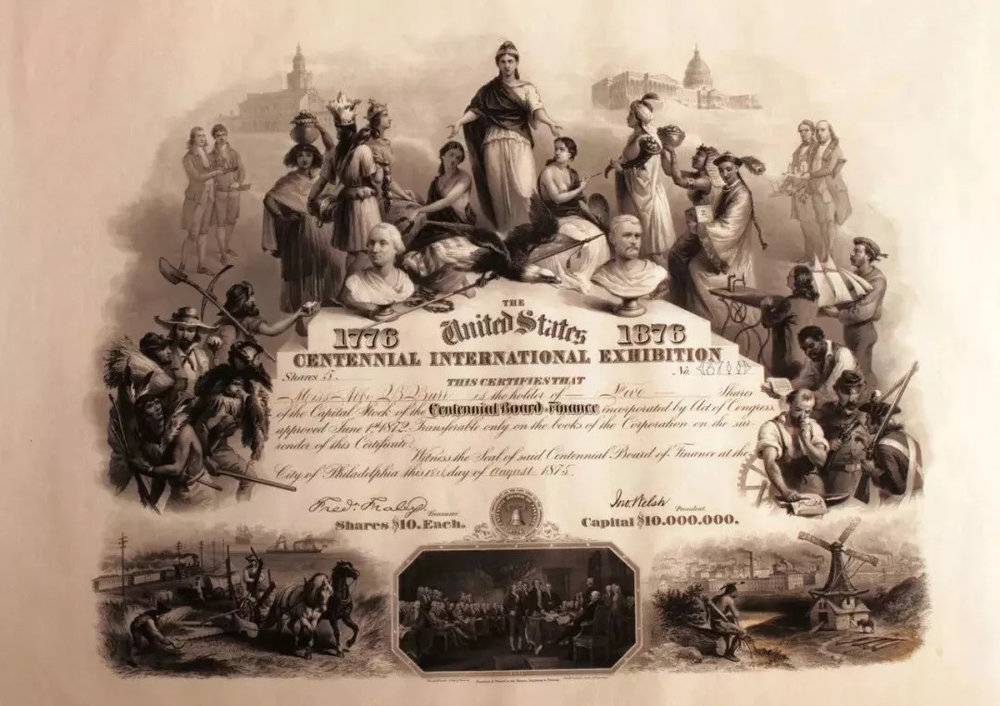 THE
United States
1776 1876
CENTENNIAL INTERNATIONAL EXHIBITION
Shares 5. No.
THIS CERTIFIES THAT
Miss is the holder of Five Shares
of the Capital Stock of the Centennial Board of Finance incorporated by Act of Congress
approved June 1st 1872. Transferable only on the books of the Corporation on the sur-
render of this Certificate.
Witness the Seal of said Centennial Board of Finance at the
City of Philadelphia this day of August 1875.
Fredk. Fraley Treasurer Jno. Welsh President
Shares $10. Each. Capital $10.000.000.